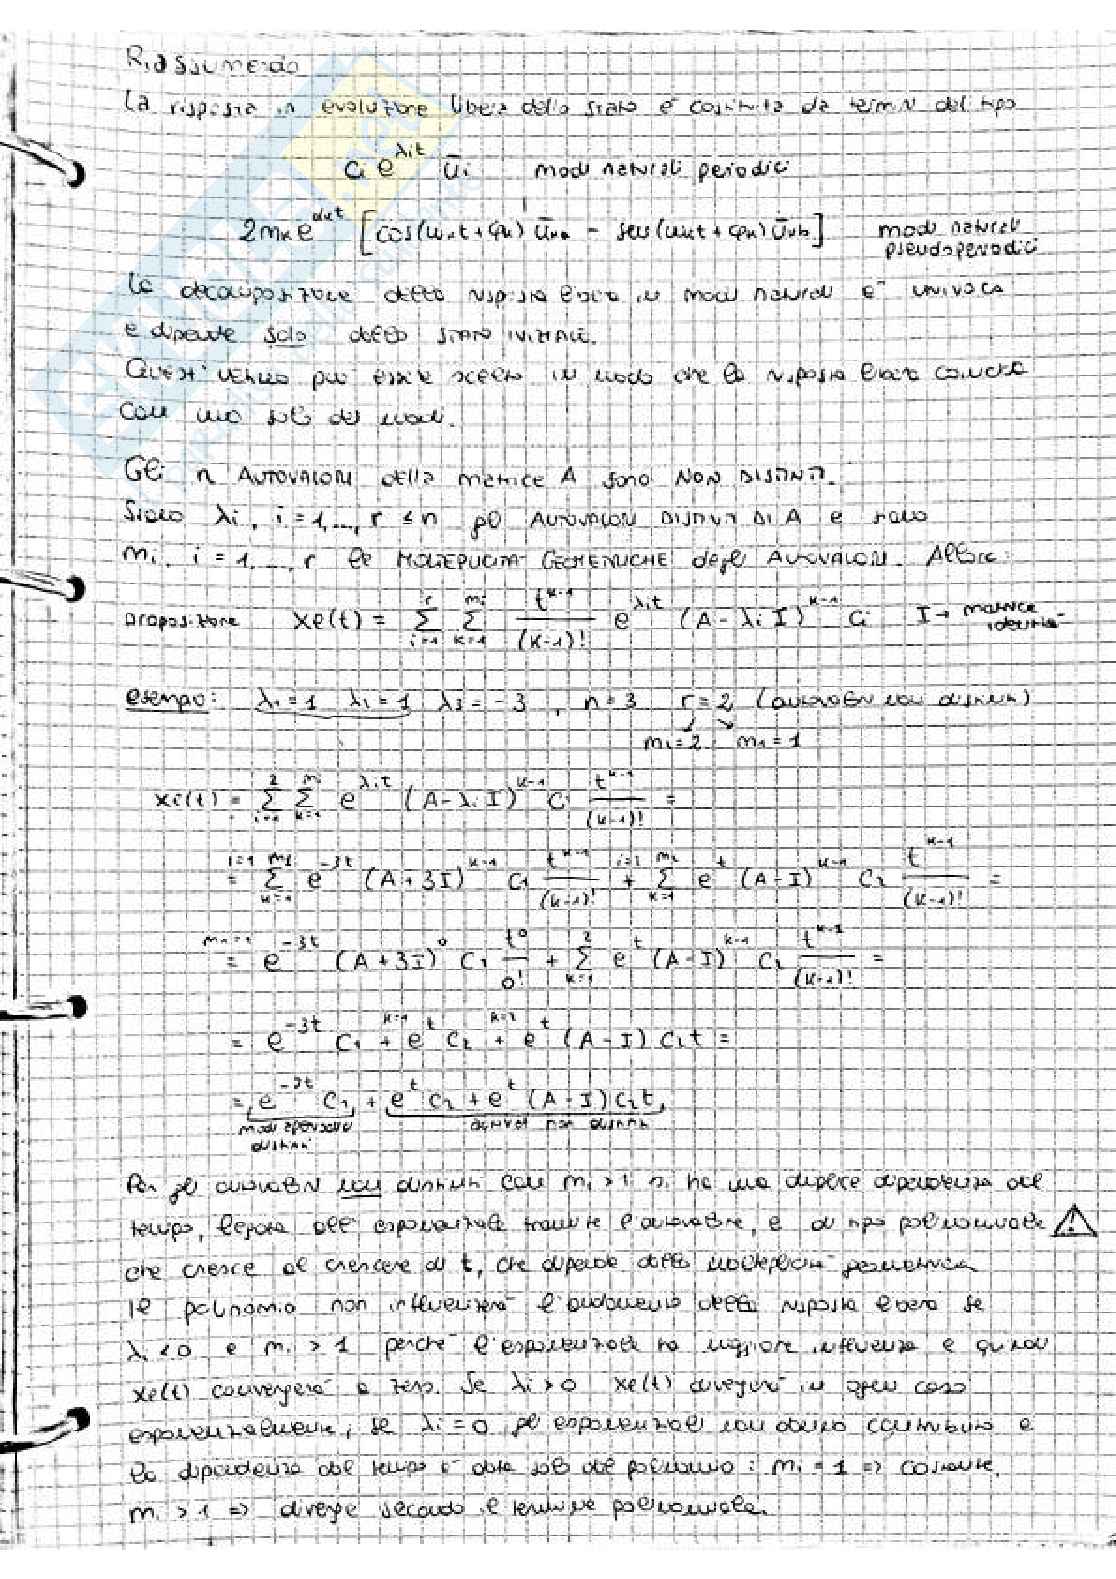 Riassumendo
La risposta in evoluzione libera dello stato è costituita da termini del tipo
Ci e^{λit} ūi modi naturali periodici
2mk e^{αkt} [cos(ωkt + φk) ūka - sen(ωkt + φk) ūkb] modi naturali
pseudoperiodici
La decomposizione della risposta libera in modi naturali è UNIVOCA
e dipende solo dallo STATO INIZIALE.
Quest'ultimo può essere scelto in modo che la risposta libera coincida
con uno solo dei modi.
Gli n AUTOVALORI della matrice A sono NON DISTINTI.
Siano λi, i = 1,..., r ≤ n gli AUTOVALORI DISTINTI DI A e siano
mi, i = 1,..., r le MOLTEPLICITÀ GEOMETRICHE degli AUTOVALORI. Allora:
Proposizione xe(t) = Σ_{i=1}^{r} Σ_{k=1}^{mi} t^{k-1}/(k-1)! e^{λit} (A - λiI)^{k-1} Ci I → matrice
identità
esempio: λ1 = 1 λ2 = 1 λ3 = -3, n = 3 r = 2 (autovalori non distinti)
m1 = 2 m1 = 1
xe(t) = Σ_{i=1}^{2} Σ_{k=1}^{mi} e^{λit} (A - λiI)^{k-1} Ci t^{k-1}/(k-1)! =
i=1 = Σ_{k=1}^{m1} e^{-3t} (A + 3I)^{k-1} C1 t^{k-1}/(k-1)! + i=2 Σ_{k=1}^{m2} e^{t} (A - I)^{k-1} C2 t^{k-1}/(k-1)! =
m1=1 = e^{-3t} (A + 3I)^0 C1 t^0/0! + Σ_{k=1}^{2} e^{t} (A - I)^{k-1} C2 t^{k-1}/(k-1)! =
= e^{-3t} C1 + k=1 e^{t} C2 + k=2 e^{t} (A - I) C2 t =
= e^{-3t} C1 + e^{t} C2 + e^{t} (A - I) C2 t,
modi aperiodici non distinti
distinti
Per gli autovalori non distinti con mi > 1 si ha una duplice dipendenza dal
tempo, legata all'esponenziale tramite l'autovalore, e di tipo polinomiale
che cresce al crescere di t, che dipende dalla molteplicità geometrica.
Il polinomio non influenzerà l'andamento della risposta libera se
λi < 0 e mi > 1 perché l'esponenziale ha maggiore influenza e quindi
xe(t) convergerà a zero. Se λi > 0 xe(t) divergerà in ogni caso
esponenzialmente; se λi = 0 gli esponenziali non danno contributo e
la dipendenza dal tempo è data solo dal polinomio: mi = 1 => costante,
mi > 1 => diverge secondo il termine polinomiale.